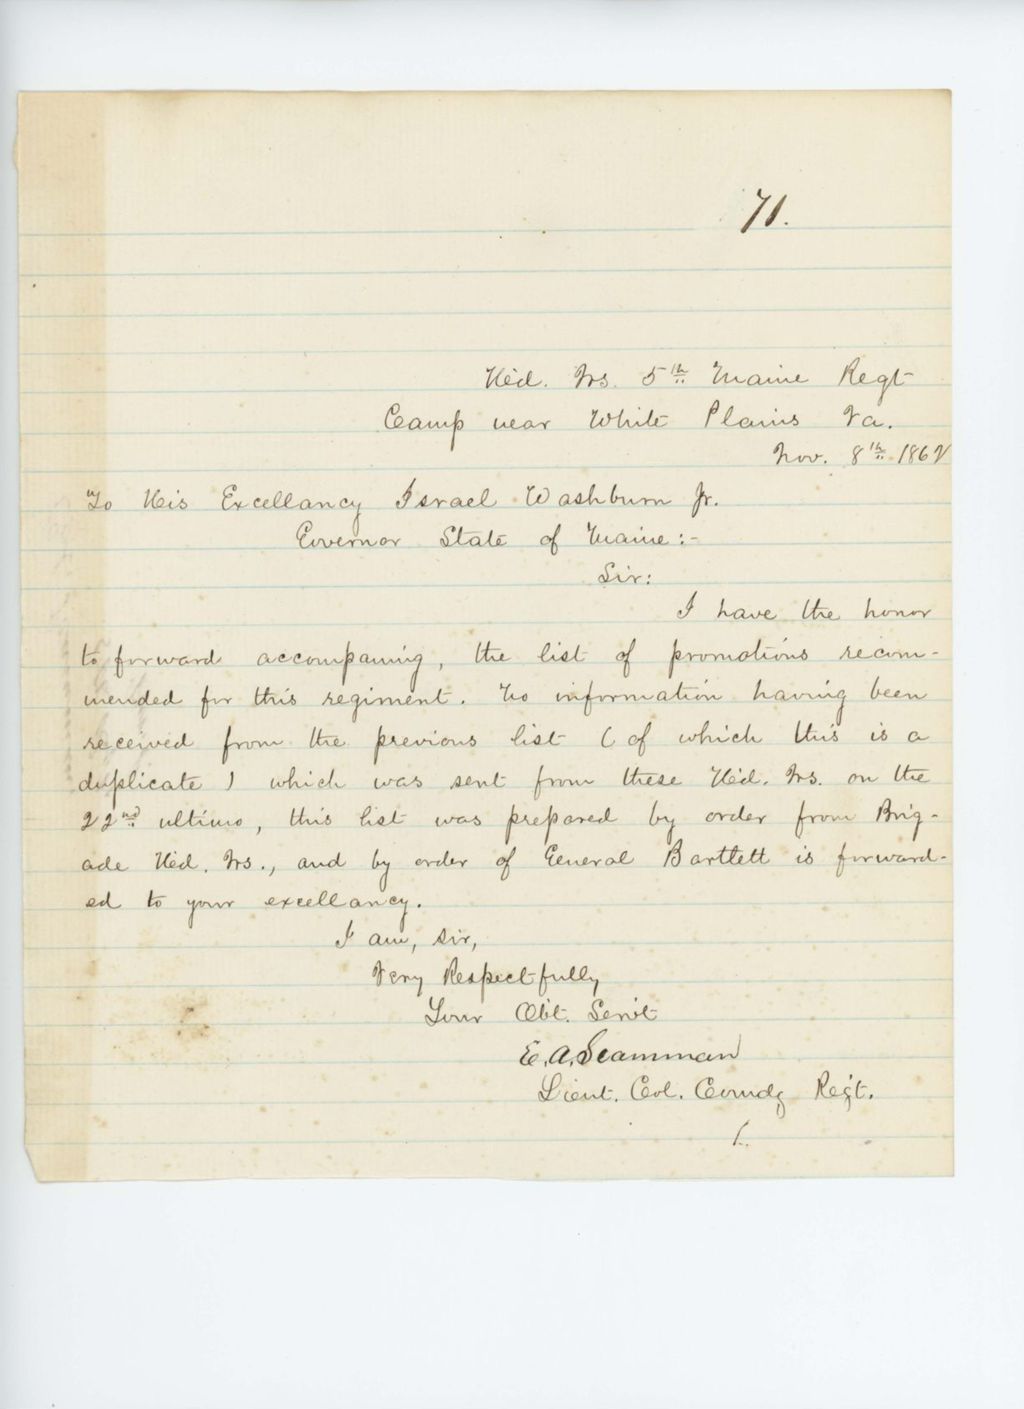 71.
Hed. Qrs. 5th Maine Regt
Camp near White Plains Va.
Nov. 8th 1862
To His Excellancy Israel Washburn Jr.
Governor State of Maine:-
Sir:
I have the honor
to forward accompaning, the list of promotions recom-
mended for this regiment. No information having been
received from the previous list (of which this is a
duplicate) which was sent from these Hed. Qrs. on the
22nd ultimo, this list was prepared by order from Brig-
ade Hed. Qrs., and by order of General Bartlett is forward-
ed to your excellancy.
I am, sir,
Very Respectfully
Your Obt. Servt
E. A. Scamman
Lieut. Col. Comdg Regt.